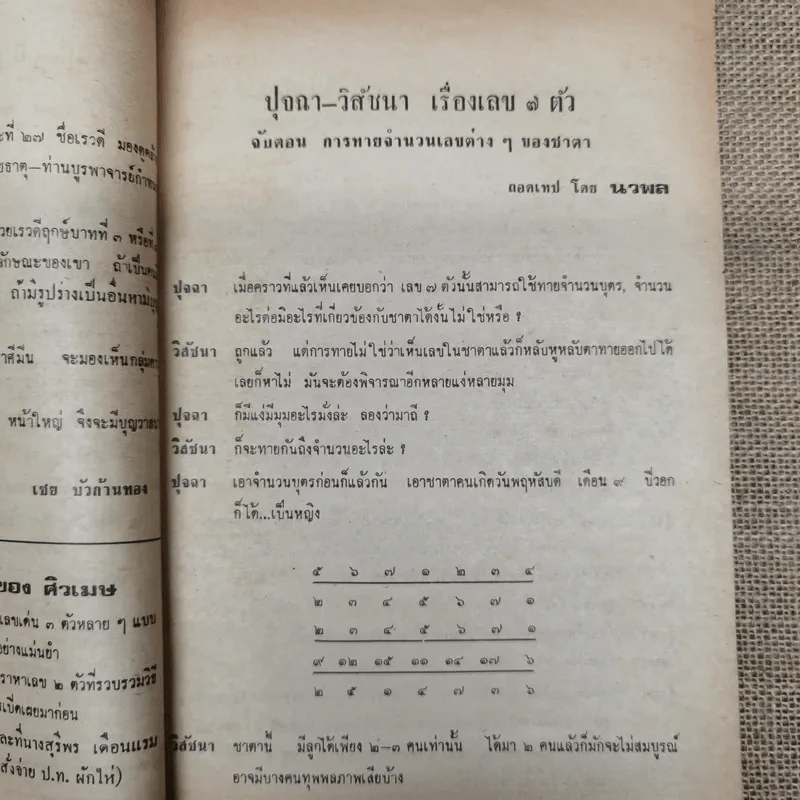 ะที่ ๒๗ ชื่อเรวดี
ยธาตุ–ท่านบูรพาจารย์กำหน
วยเรวดีฤกษ์บาทที่ ๓ หรือที่
ลักษณะของเขา ถ้าเป็น
ถ้ามีรูปร่างเป็นอื่นหามิ
าศีมีน จะมองเห็นกลุ่ม
หน้าใหญ่ จึงจะมีบุญวาส
เชย บัวก้านทอง
ของ ศิวเมษ
เลขเด่น ๓ ตัวหลาย ๆ แบบ
อย่างแม่นยำ
ราหาเลข ๒ ตัวที่รวบรวมวิธี
เปิดเผยมาก่อน
ละที่นางสุรีพร เดือนแรม
สั่งจ่าย ป.ท. ผักไห่)
ปุจฉา–วิสัชนา เรื่องเลข ๗ ตัว
ฉับตอน การทายจำนวนเลขต่าง ๆ ของชาตา
ถอดเทป โดย นวพล
ปุจฉา เมื่อคราวที่แล้วเห็นเคยบอกว่า เลข ๗ ตัวนั้นสามารถใช้ทายจำนวนบุตร, จำนวน
อะไรต่อมิอะไรที่เกี่ยวข้องกับชาตาได้งั้นไม่ใช่หรือ ?
วิสัชนา ถูกแล้ว แต่การทายไม่ใช่ว่าเห็นเลขในชาตาแล้วก็หลับหูหลับตาทายออกไปได้
เลยก็หาไม่ มันจะต้องพิจารณาอีกหลายแง่หลายมุม
ปุจฉา ก็มีแง่มีมุมอะไรมั่งล่ะ ลองว่ามาถี ?
วิสัชนา ก็จะทายกันถึงจำนวนอะไรล่ะ ?
ปุจฉา เอาจำนวนบุตรก่อนก็แล้วกัน เอาชาตาคนเกิดวันพฤหัสบดี เดือน ๙ ปีวอก
ก็ได้...เป็นหญิง
๕ ๖ ๗ ๑ ๒ ๓ ๔
๒ ๓ ๔ ๕ ๖ ๗ ๑
๒ ๓ ๔ ๕ ๖ ๗ ๑
๙ ๑๒ ๑๕ ๑๑ ๑๔ ๑๗ ๖
๒ ๕ ๑ ๔ ๗ ๓ ๖
วิสัชนา ชาตานี้ มีลูกได้เพียง ๒–๓ คนเท่านั้น ได้มา ๒ คนแล้วก็มักจะไม่สมบูรณ์
อาจมีบางคนทุพพลภาพเสียบ้าง